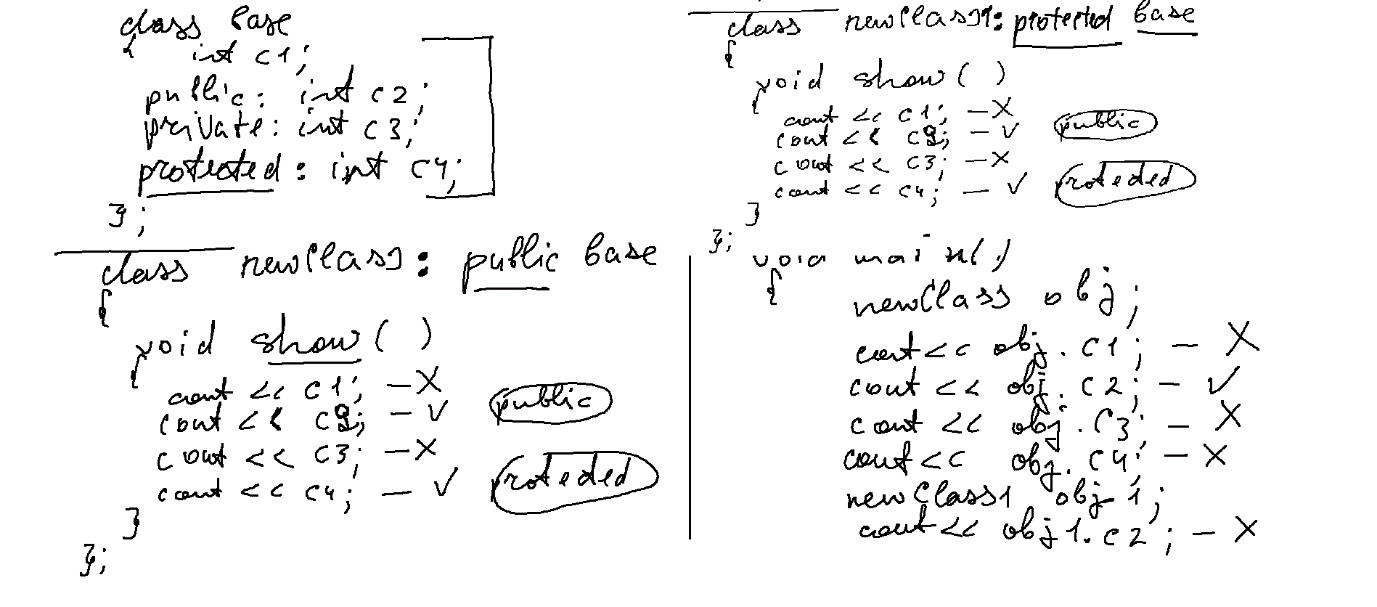 class Base
{
int c1;
public: int c2;
private: int c3;
protected: int c4;
};
class newClass: public base
{
void show ( )
{
cout << c1; — X
cout << c2; — ✓ public
cout << c3; — X
cout << c4; — ✓ proteded
}
};
class newClass1: protected base
{
void show ( )
{
cout << c1; — X
cout << c2; — ✓ public
cout << c3; — X
cout << c4; — ✓ proteded
}
};
void main()
{
newClass obj;
cout << obj. c1; — X
cout << obj. c2; — ✓
cout << obj. c3; — X
cout << obj. c4; — X
newClass1 obj1;
cout << obj1.c2; — X